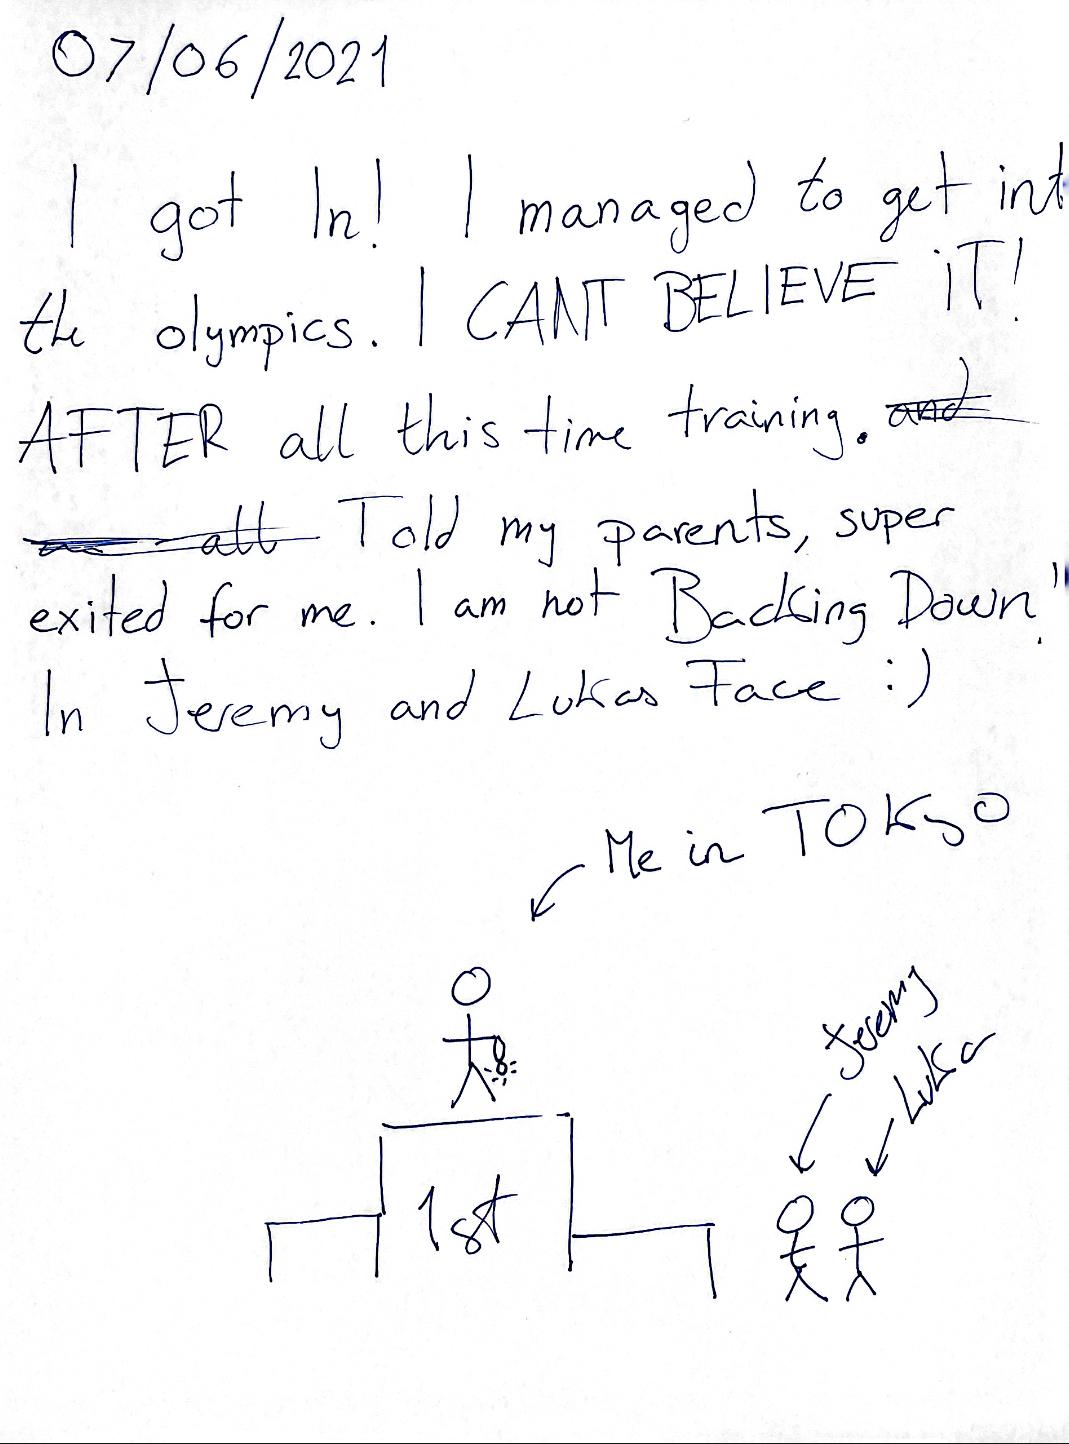 07/06/2021
I got In! I managed to get int
the olympics. I CANT BELIEVE iT!
AFTER all this time training. and
all Told my parents, super
exited for me. I am not Backing Down!
In Jeremy and Lukas Face :)
Me in TOKyO
Jeremy
Luka
1st